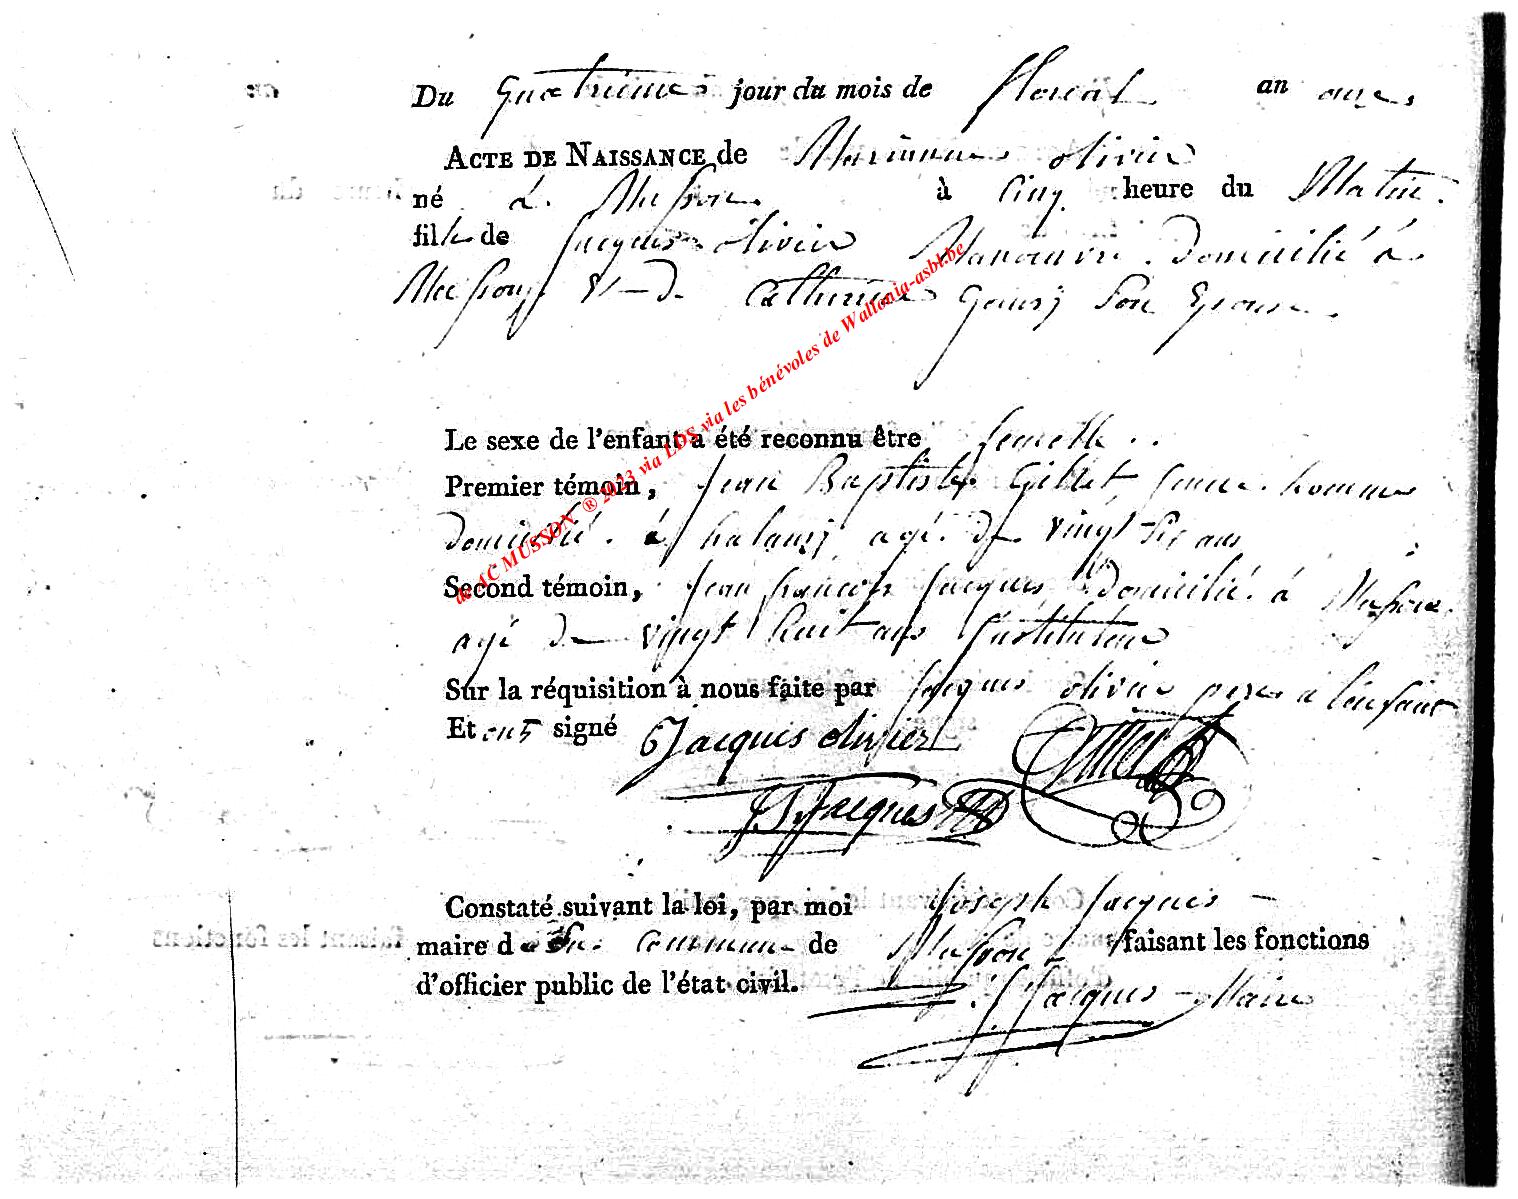 Du quatrieme jour du mois de floreal an onze
ACTE DE NAISSANCE de Marianne olivier
né à Musson à Cinq heure du Matin.
fille de Jacques olivier Manoeuvre domicilié à
Musson & de Catherine Goury son Epouse.
Le sexe de l'enfant a été reconnu être femelle..
Premier témoin, Jean Baptiste Gillet, jeune homme
domicilié à halanzy agé de vingt six ans
Second témoin, Jean françois Jacques domicilié à Musson
agé de vingt huit ans Instituteur
Sur la réquisition à nous faite par Jacques olivier pere a l'enfant
Et ont signé Jacques olivier Gillet
J f Jacques
Constaté suivant la loi, par moi Joseph Jacques
maire de la commune de Musson faisant les fonctions
d'officier public de l'état civil. J Jacques Maire
de AC MUSSON ® 2023 via LDS via les bénévoles de Wallonia-asbl.be